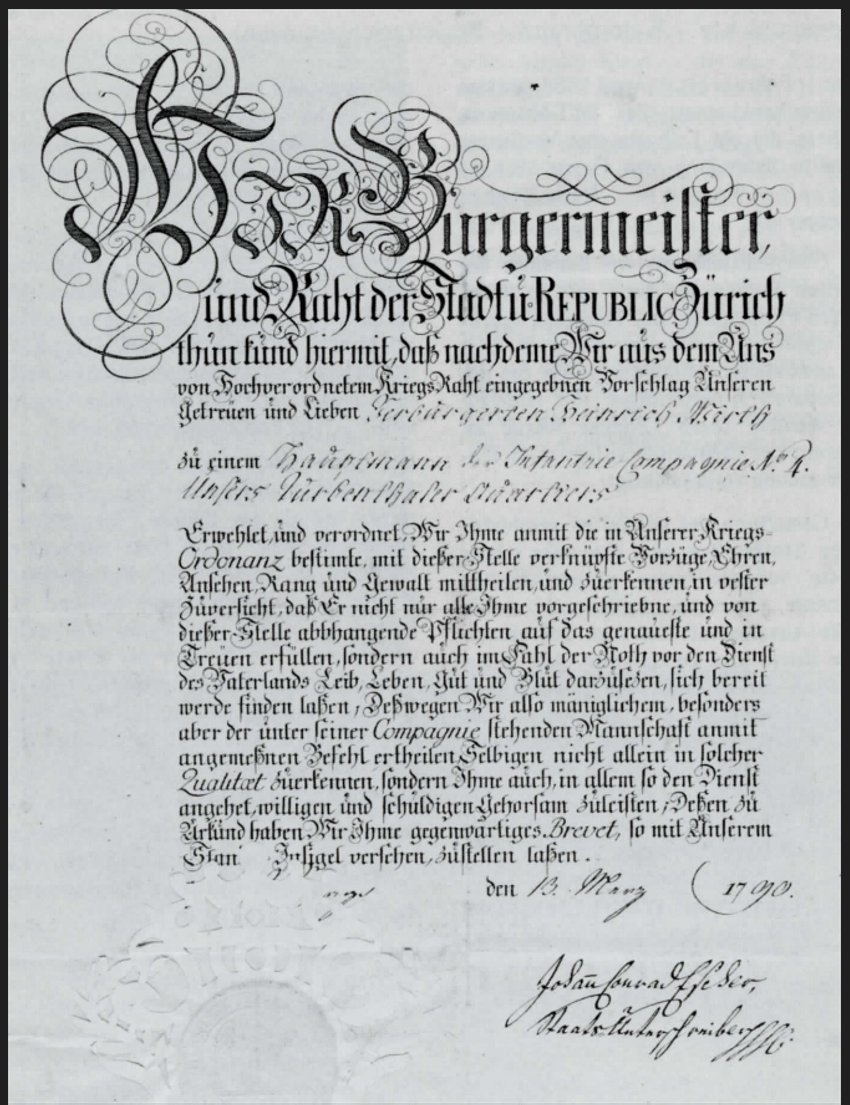 WIR Burgermeister,
und Raht der Stadt u: REPUBLIC Zürich
thun kund hiermit, daß nachdeme Wir aus dem Uns
von Hochverordnetem Kriegs Raht eingegebnen Vorschlag Unseren
Getreuen und Lieben Verburgerten Heinrich Wirth
zu einem Hauptmann der Infantrie Compagnie N.º 4.
Unsers Turbenthaler Quartiers
Erwehlet, und verordnet, Wir Ihme anmit die in Unserer Kriegs-
Ordonanz bestimte, mit dießer Stelle verknüpfte Vorzüge, Ehren,
Ansehen, Rang und Gewalt mittheilen, und zuerkennen, in vester
Zuversicht, daß Er nicht nur alle Ihme vorgeschriebne, und von
dießer Stelle abbhangende Pflichten auf das genaueste und in
Treuen erfüllen, sondern auch im Fahl der Noth vor den Dienst
des Vaterlands Leib, Leben, Gut und Blut darzusezen, sich bereit
werde finden laßen; Deßwegen Wir also mäniglichem, besonders
aber der unter seiner Compagnie stehenden Mannschaft anmit
angemeßnen Befehl ertheilen, Selbigen nicht allein in solcher
Qualitæt zuerkennen, sondern Ihme auch, in allem so den Dienst
angehet, willigen und schuldigen Gehorsam zuleisten; Deßen zu
Urkund haben Wir Ihme gegenwärtiges Brevet, so mit Unserem
Stan Insigel versehen, zustellen laßen.
den 13. Marz 1790.
Johañ Conrad Escher,
Staats Unterschreiber